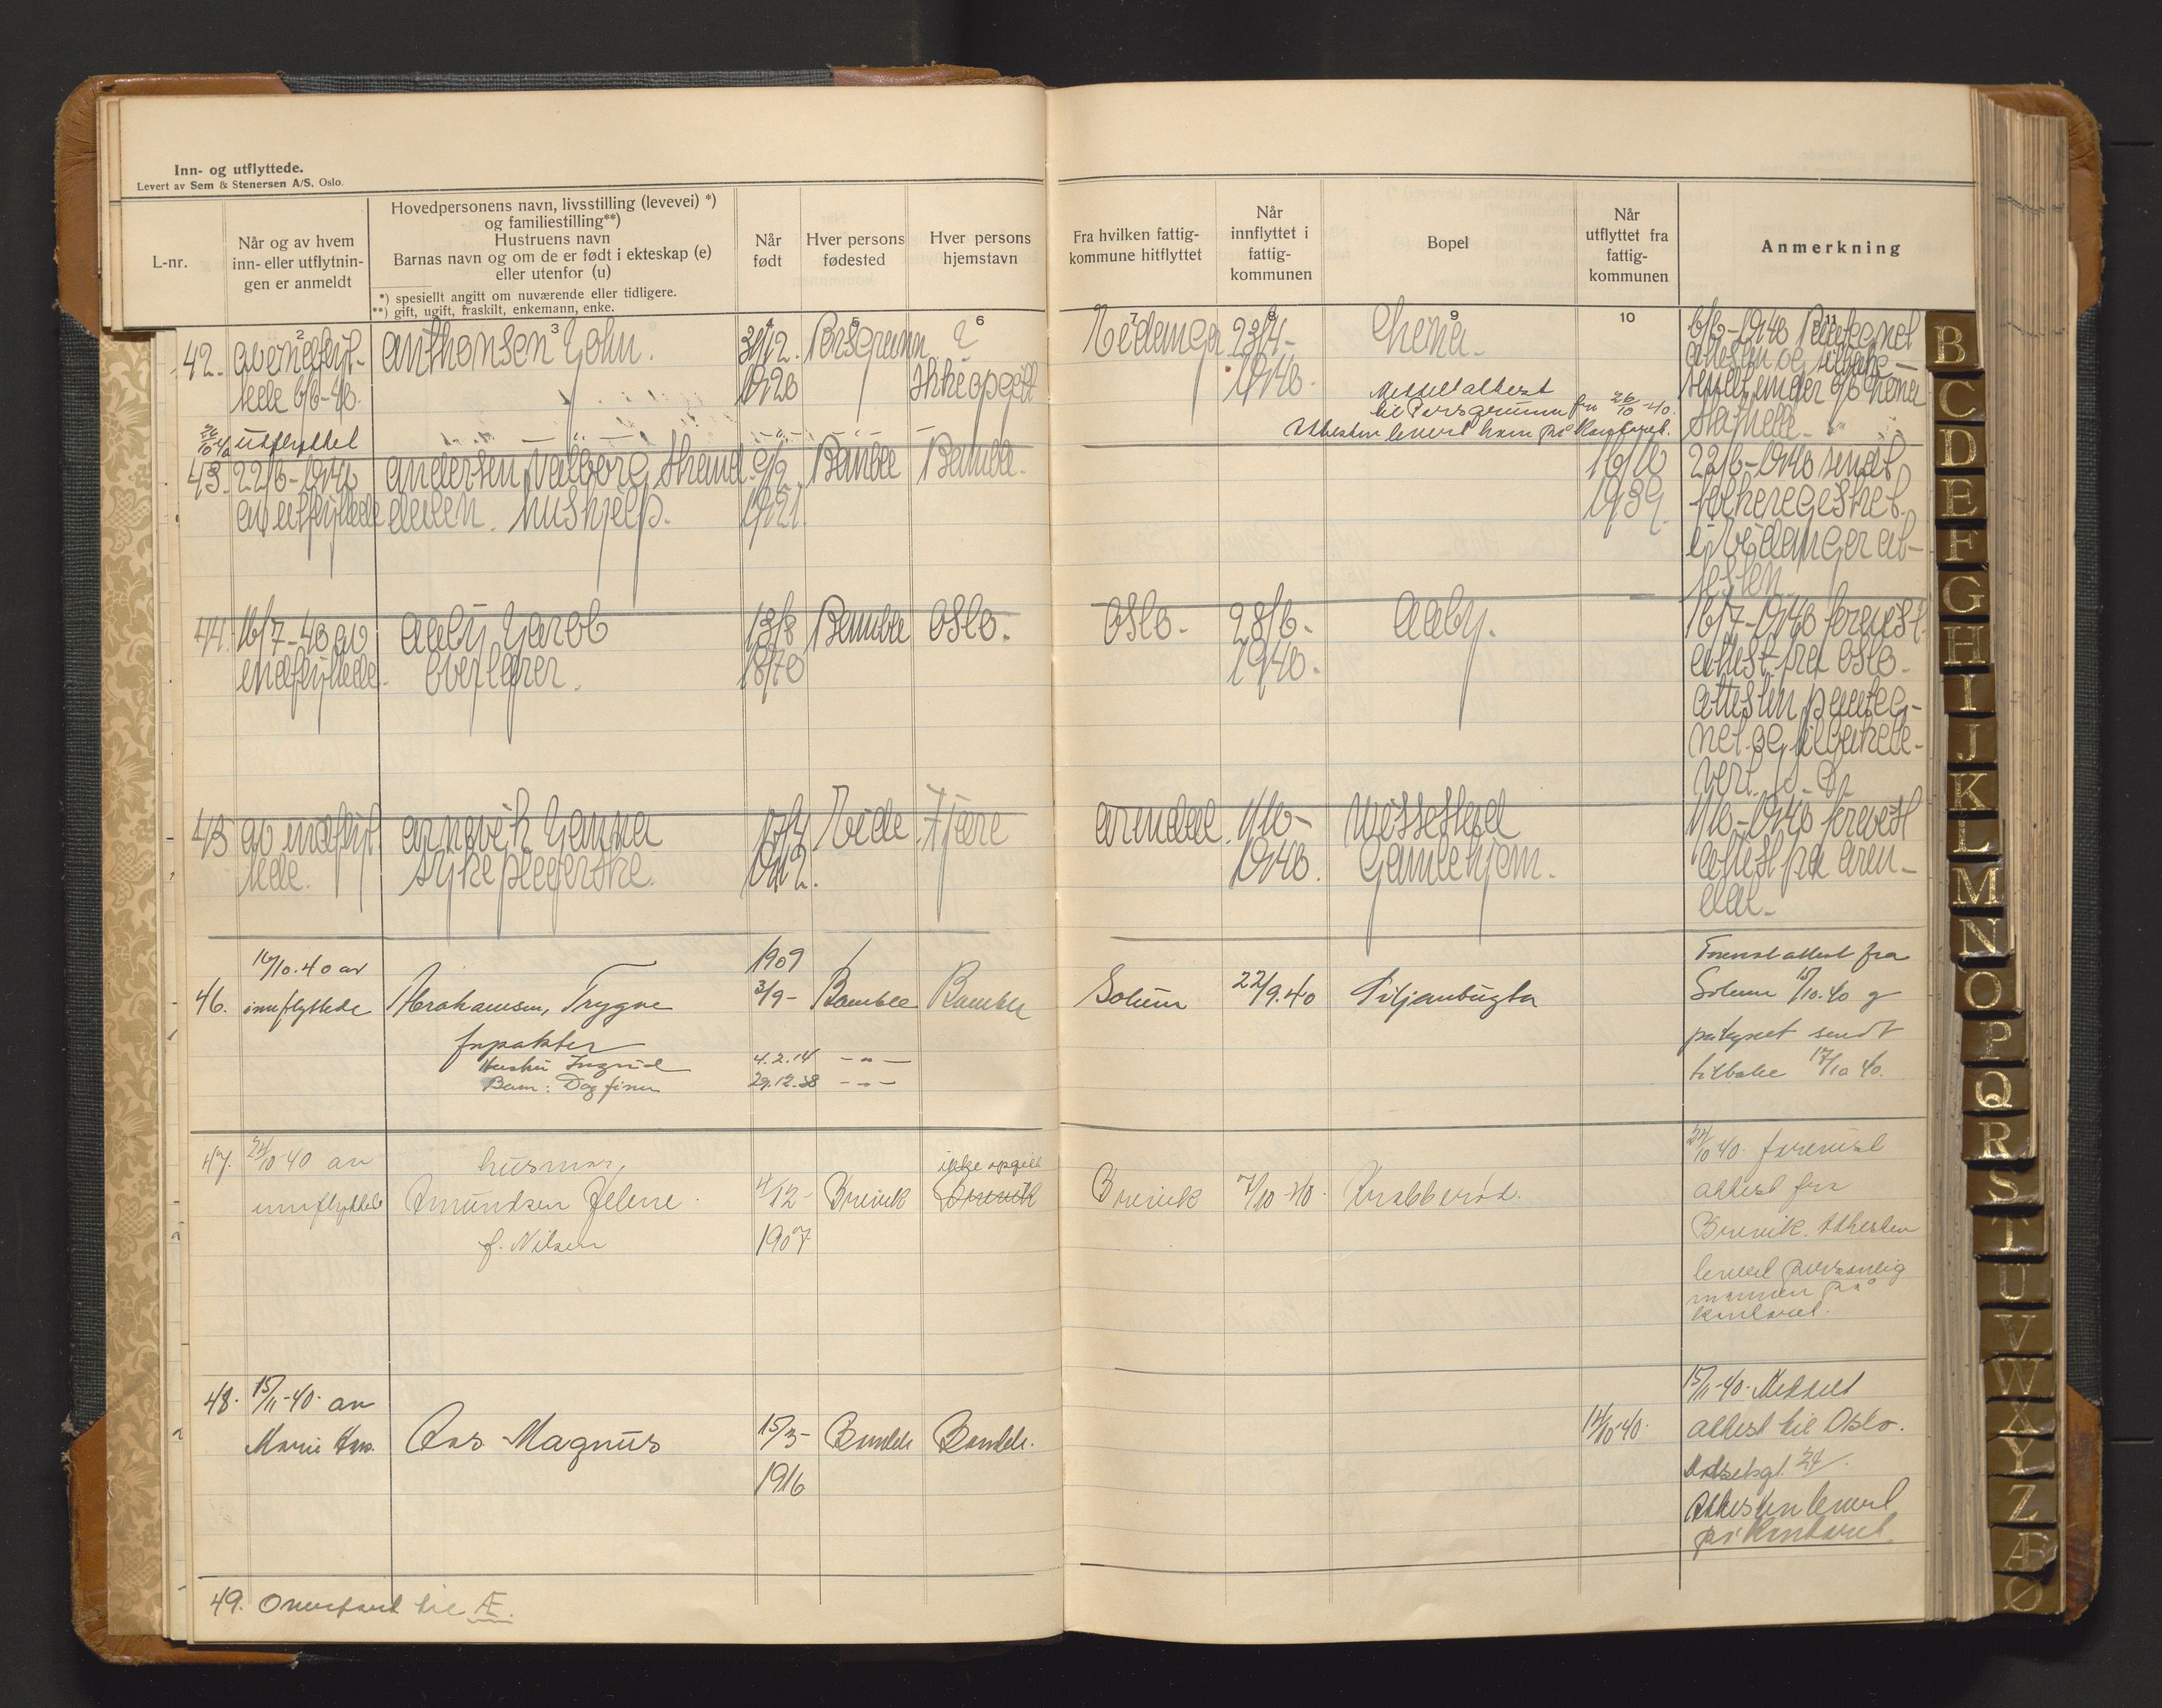 Inn- og utflyttede.
Levert av Sem & Stenersen A/S, Oslo.
L-nr.
Når og av hvem
inn- eller utflytnin-
gen er anmeldt
Hovedpersonens navn, livsstilling (levevei) *)
og familiestilling**)
Hustruens navn
Barnas navn og om de er født i ekteskap (e)
eller utenfor (u)
*) spesiellt angitt om nuværende eller tidligere.
**) gift, ugift, fraskilt, enkemann, enke.
Når
født
Hver persons
fødested
Hver persons
hjemstavn
Fra hvilken fattig-
kommune hitflyttet
Når
innflyttet i
fattig-
kommunen
Bopel
Når
utflyttet fra
fattig-
kommunen
Anmerkning
2 3 4 5 6 7 8 9 10 11
42. av indflyt-
tede 6/6-40.
26/10 40 utflyttet
Anthonsen John.
1920
Porsgrunn
?
Ikke opgitt
Eidanger
23/4-
1940.
6/6-1940 Paategnet
attesten og tilbake-
sendt under 6/6
Stathelle
Meddelt attest
til Porsgrunn fra 26/10-40.
Attesten levert ham på kontoret.
43. 22/6-1940
av utflyttede
Andersen Valborg Strand-
dalen. Hushjelp.
9/2
1921.
Bamble
Bamble.
1939.
22/6-1940 sendt
folkeregistret
i Eidanger at-
testen
44. 16/7-40 av
indflyttede.
Aaby Jacob
Overlærer.
13/8
1870
Bamble
Oslo.
Oslo.
28/6-
1940.
Aaby.
16/7-1940 forevist
attest fra Oslo.
Attesten paateg-
net og tilbakele-
vert
45 av indflyt-
tede.
Arnevik Hanna
sykepleierske.
1912.
Eide
Fjære
Arendal.
1/6-
1940.
Vissestad
Gamlehjem.
1/6-1940 forevist
attest fra Aren-
dal.
46. 16/10.40 av
innflyttede
Abrahamsen, Trygve
forpakter
Hustru Ingrid
Barn: Dag Finn
1909
3/9-
4.2.14
29.12.38
Bamble
- " -
- " -
Bamble
Solum
22/9.40
Siljanbugta
Forevist attest fra
Solum 15/10.40 og
påtegnet sendt
tilbake 17/10 40.
47. 24/10-40 av
innflyttede
husmor,
Amundsen Helene.
f. Nilsen
4/12-
1907
Brevik
ikke opgitt
Brevik
Brevik
7/10-40.
Krabberød.
24/10 40. forevist
attest fra
Brevik. Attesten
levert personlig
mannen på
kontoret.
48. 15/11-40. av
Marie Aas.
Aas Magnus
15/3-
1916
Bamble
Bamble.
12/10-40.
15/11-40. Meddelt
attest til Oslo.
24/.
Attesten levert
på kontoret.
49. Overført til Æ.
B
C
D
E
F
G
H
I
J
K
L
M
N
O
P
Q
R
S
T
U
V
W
X
Y
Z
Æ
Ø